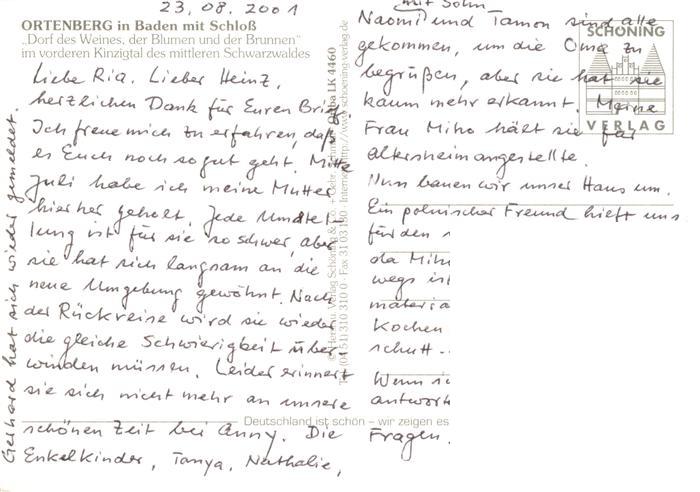 23.08.2001
ORTENBERG in Baden mit Schloß
„Dorf des Weines, der Blumen und der Brunnen"
im vorderen Kinzigtal des mittleren Schwarzwaldes
Liebe Ria. Lieber Heinz,
herzlichen Dank für Euren Brief.
Ich freue mich zu erfahren, daß
es Euch noch so gut geht. Mitte
Juli habe ich meine Mutter
hierher geholt. Jede Umstel-
lung ist für sie so schwer, aber
sie hat sich langsam an die
neue Umgebung gewöhnt. Nach
der Rückreise wird sie wieder
die gleiche Schwierigkeit über
winden müssen. Leider erinnert
sie sich nicht mehr an unsere
schönen Zeit bei Anny. Die
Enkelkinder, Tanya, Nathalie,
mit Sohn
Naomi und Tamon sind alle
gekommen, um die Oma zu
begrüßen, aber sie hat sie
kaum mehr erkannt. Meine
Frau Miho hält sie für
altersheimangestellte.
Nun bauen wir unser Haus um.
Ein polnischer Freund hieft uns
für den
da Miho
wegs ist
materia
Kochen
schutt
Wenn sie
antwort
Fragen.
Gerhard hat sich wieder gemeldet.
Verlag Schöning & Co. +
LK 4460
http://www.schoening-verlag.de
Deutschland ist schön – wir zeigen es
SCHÖNING
VERLAG